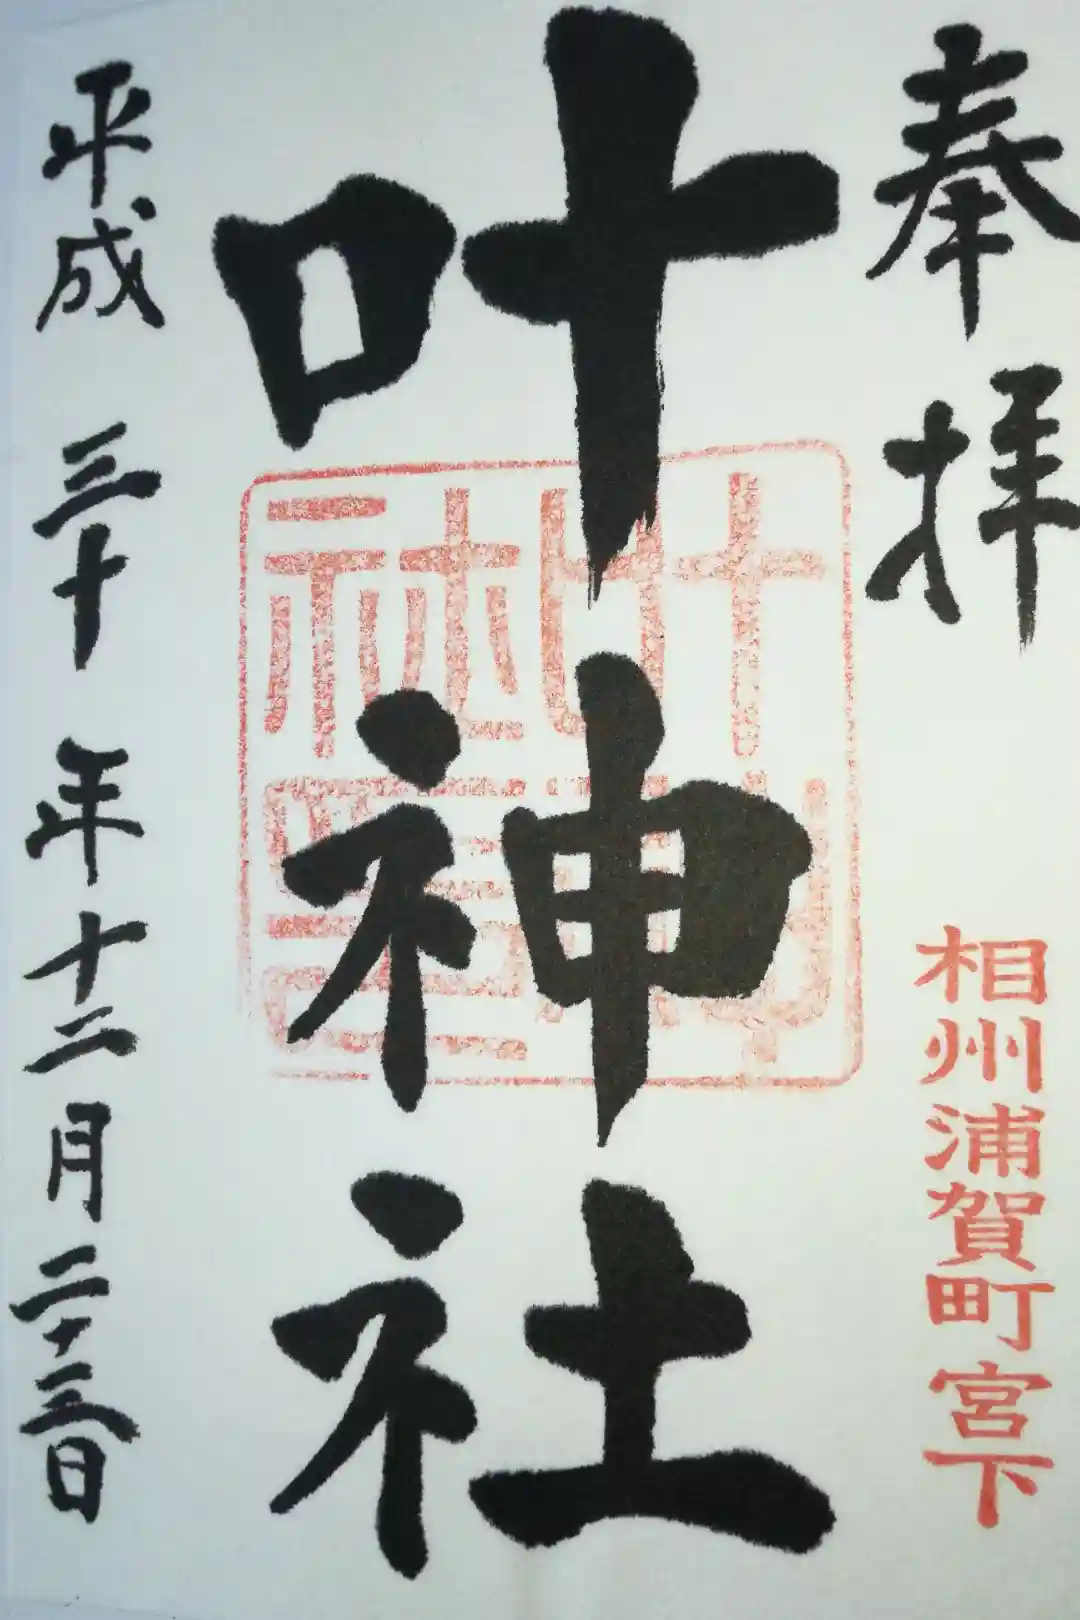 奉拝
相州浦賀町宮下
叶神社
平成三十年十二月二十三日